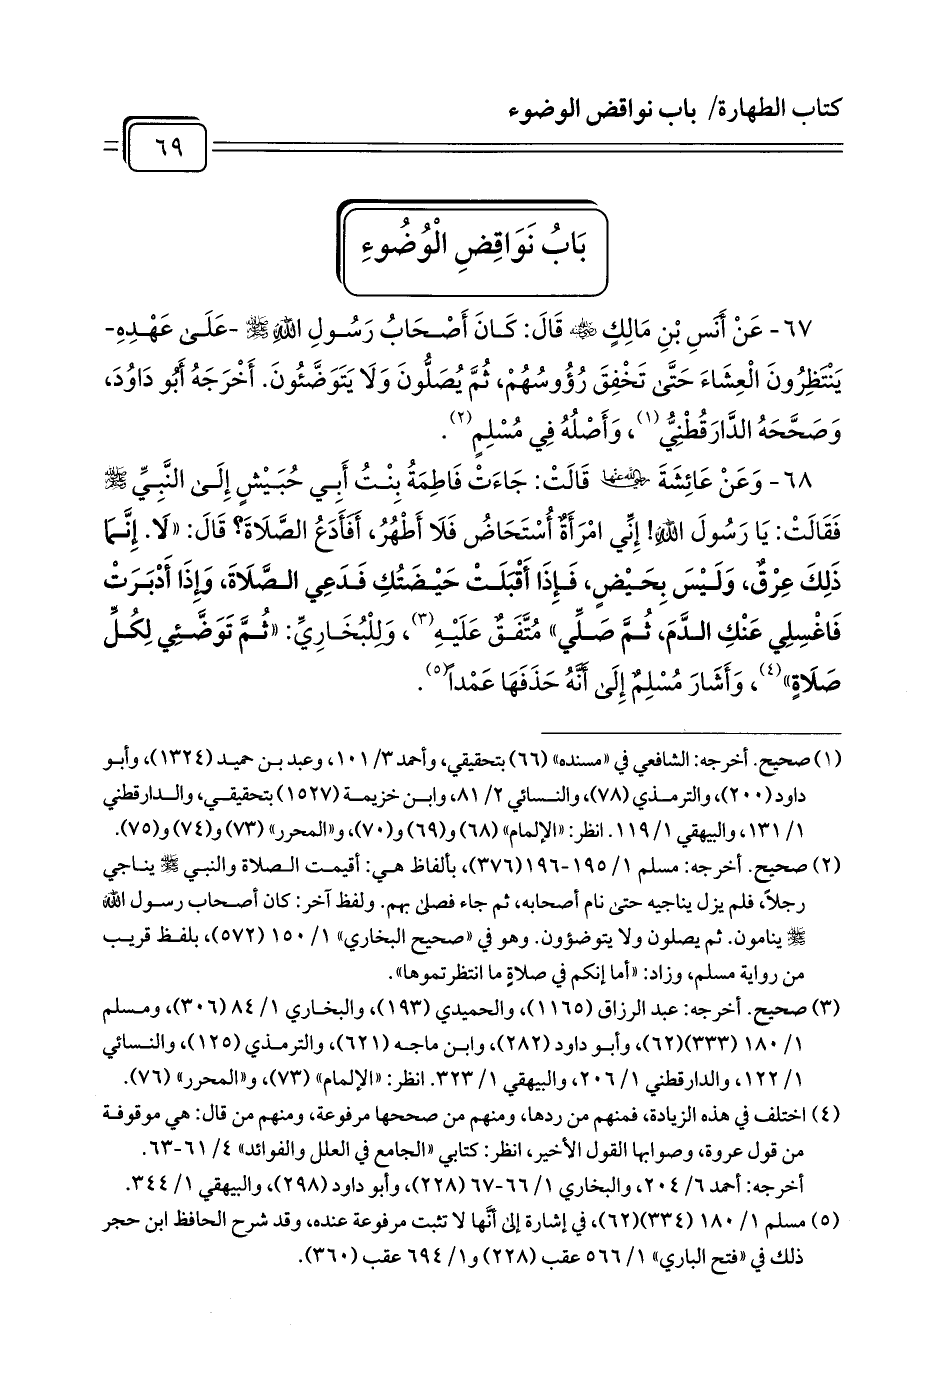 كتاب الطهارة/ باب نواقض الوضوء
٦٩
بَابُ نَوَاقِضِ الْوُضُوءِ
٦٧- عَنْ أَنَسِ بْنِ مَالِكٍ ﷺ قَالَ: كَـانَ أَصْـحَابُ رَسُـولِ اللهِ ﷺ -عَلَـى عَهْـدِهِ-
يَنْتَظِرُونَ الْعِشَاءَ حَتَّى تَخْفِقَ رُؤُوسُهُمْ، ثُمَّ يُصَلُّونَ وَلَا يَتَوَضَّئُونَ. أَخْرَجَهُ أَبُو دَاوُدَ،
وَصَحَّحَهُ الدَّارَقُطْنِيُّ(١)، وَأَصْلُهُ فِي مُسْلِمٍ(٢).
٦٨- وَعَنْ عَائِشَةَ رضي الله عنها قَالَتْ: جَاءَتْ فَاطِمَةُ بِنْـتُ أَبِـي حُبَيْشٍ إِلَـى النَّبِـيِّ ﷺ
فَقَالَتْ: يَا رَسُولَ اللهِ! إِنِّي امْرَأَةٌ أُسْتَحَاضُ فَلَا أَطْهُرُ، أَفَأَدَعُ الصَّلَاةَ؟ قَالَ: «لَا. إِنَّمَا
ذَلِكَ عِرْقٌ، وَلَيْسَ بِحَيْضٍ، فَـإِذَا أَقْبَلَتْ حَيْضَتُكِ فَـدَعِي الـصَّلَاةَ، وَإِذَا أَدْبَرَتْ
فَاغْسِلِي عَنْكِ الـدَّمَ، ثُمَّ صَلِّي» مُتَّفَقٌ عَلَيْهِ(٣)، وَلِلْبُخَارِيِّ: «ثُـمَّ تَوَضَّئِي لِكُلِّ
صَلَاةٍ»(٤)، وَأَشَارَ مُسْلِمٌ إِلَى أَنَّهُ حَذَفَهَا عَمْداً(٥).
(١) صحيح. أخرجه: الشافعي في «مسنده» (٦٦) بتحقيقي، وأحمد ٣/ ١٠١، وعبد بـن حميد (١٣٢٤)، وأبو
داود (٢٠٠)، والترمذي (٧٨)، والنسائي ٢/ ٨١، وابن خزيمة (١٥٢٧) بتحقيقـي، والـدارقطني
١/ ١٣١، والبيهقي ١/ ١١٩. انظر: «الإلمام» (٦٨) و(٦٩) و(٧٠)، و«المحرر» (٧٣) و(٧٤) و(٧٥).
(٢) صحيح. أخرجه: مسلم ١/ ١٩٥-١٩٦ (٣٧٦)، بألفاظ هـي: أقيمـت الـصلاة والنبي ﷺ يناجي
رجلاً، فلم يزل يناجيه حتى نام أصحابه، ثم جاء فصلى بهم. ولفظ آخر: كان أصـحاب رسـول الله
ﷺ ينامون. ثم يصلون ولا يتوضؤون. وهو في «صحيح البخاري» ١/ ١٥٠ (٥٧٢)، بلفـظ قريب
من رواية مسلم، وزاد: «أما إنكم في صلاةٍ ما انتظرتموها».
(٣) صحيح. أخرجه: عبد الرزاق (١١٦٥)، والحميدي (١٩٣)، والبخاري ١/ ٨٤ (٣٠٦)، ومـسلم
١/ ١٨٠ (٣٣٣)(٦٢)، وأبـو داود (٢٨٢)، وابـن ماجـه (٦٢١)، والترمـذي (١٢٥)، والنـسائي
١/ ١٢٢، والدارقطني ١/ ٢٠٦، والبيهقي ١/ ٣٢٣. انظر: «الإلمام» (٧٣)، و«المحرر» (٧٦).
(٤) اختلف في هذه الزيادة، فمنهم من ردها، ومنهم من صححها مرفوعة، ومنهم من قال: هي موقوفة
من قول عروة، وصوابها القول الأخير، انظر: كتابي «الجامع في العلل والفوائد» ٤/ ٦١-٦٣.
أخرجه: أحمد ٦/ ٢٠٤، والبخاري ١/ ٦٦-٦٧ (٢٢٨)، وأبو داود (٢٩٨)، والبيهقي ١/ ٣٤٤.
(٥) مسلم ١/ ١٨٠ (٣٣٤)(٦٢)، في إشارة إلى أنَّها لا تثبت مرفوعة عنده، وقد شرح الحافظ ابن حجر
ذلك في «فتح الباري» ١/ ٥٦٦ عقب (٢٢٨) و١/ ٦٩٤ عقب (٣٦٠).